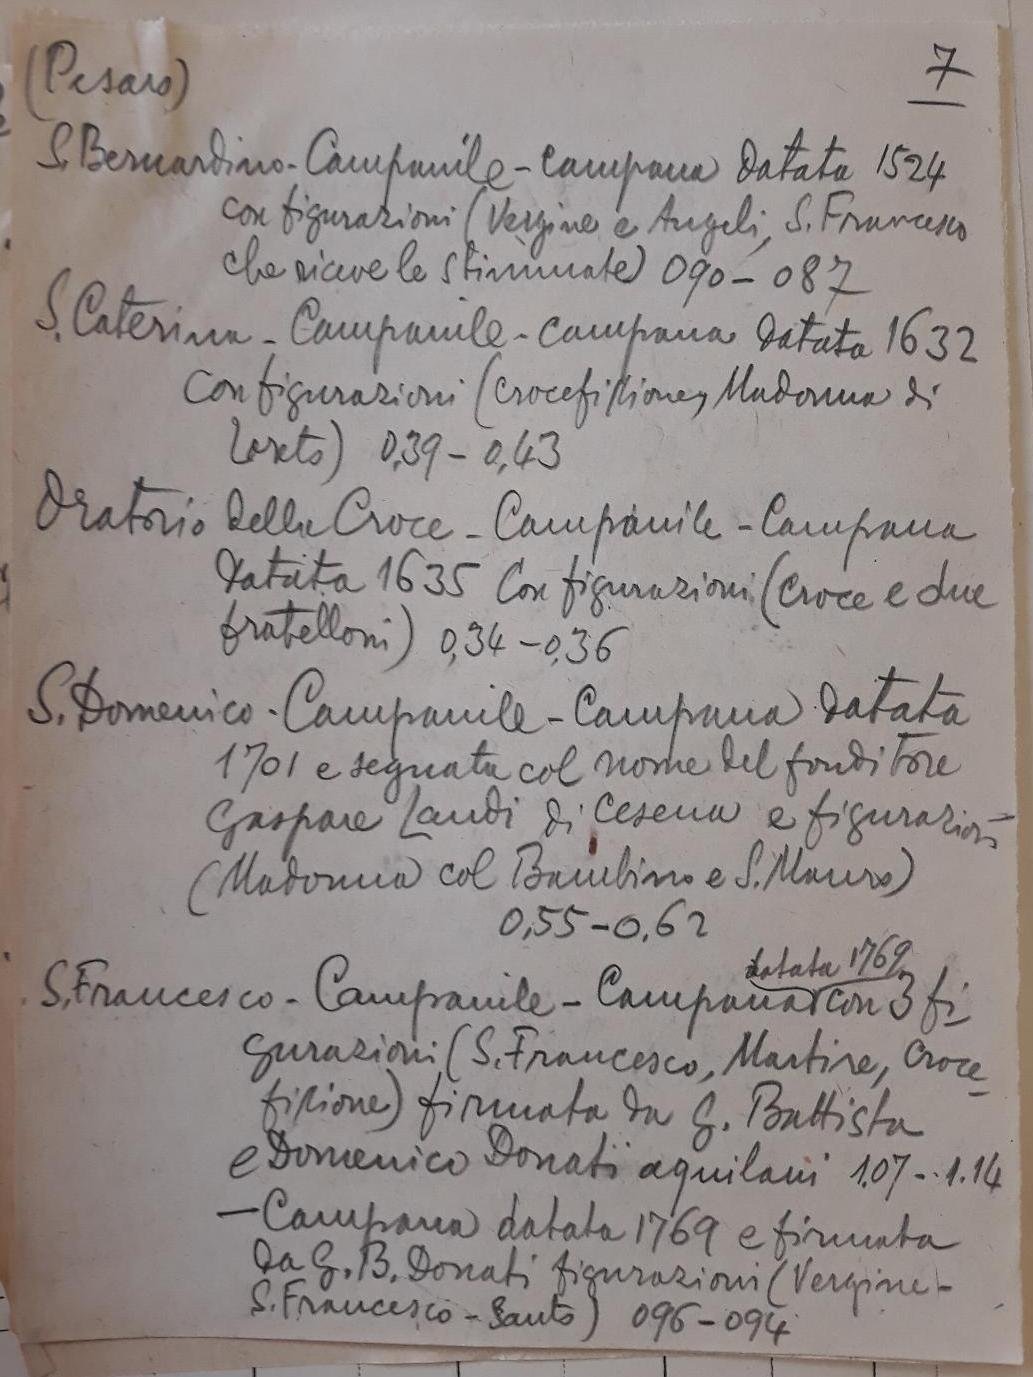 (Pesaro) 7
S. Bernardino - Campanile - campana datata 1524
con figurazioni (Vergine e Angeli, S. Francesco
che riceve le stimmate) 090 - 087
S. Caterina - Campanile - campana datata 1632
con figurazioni (crocefissione, Madonna di
Loreto) 0,39 - 0,43
Oratorio della Croce - Campanile - Campana
datata 1635 con figurazioni (croce e due
fratelloni) 0,34 - 0,36
S. Domenico - Campanile - Campana datata
1701 e segnata col nome del fonditore
Gaspare Landi di Cesena e figurazioni
(Madonna col Bambino e S. Mauro)
0,55 - 0,62
datata 1769
S. Francesco - Campanile - Campana con 3 fi-
gurazioni (S. Francesco, Martire, Croce-
fissione) firmata da G. Battista
e Domenico Donati aquilani 1.07 - 1.14
— Campana datata 1769 e firmata
da G. B. Donati figurazioni (Vergine -
S. Francesco - Santo) 096 - 094